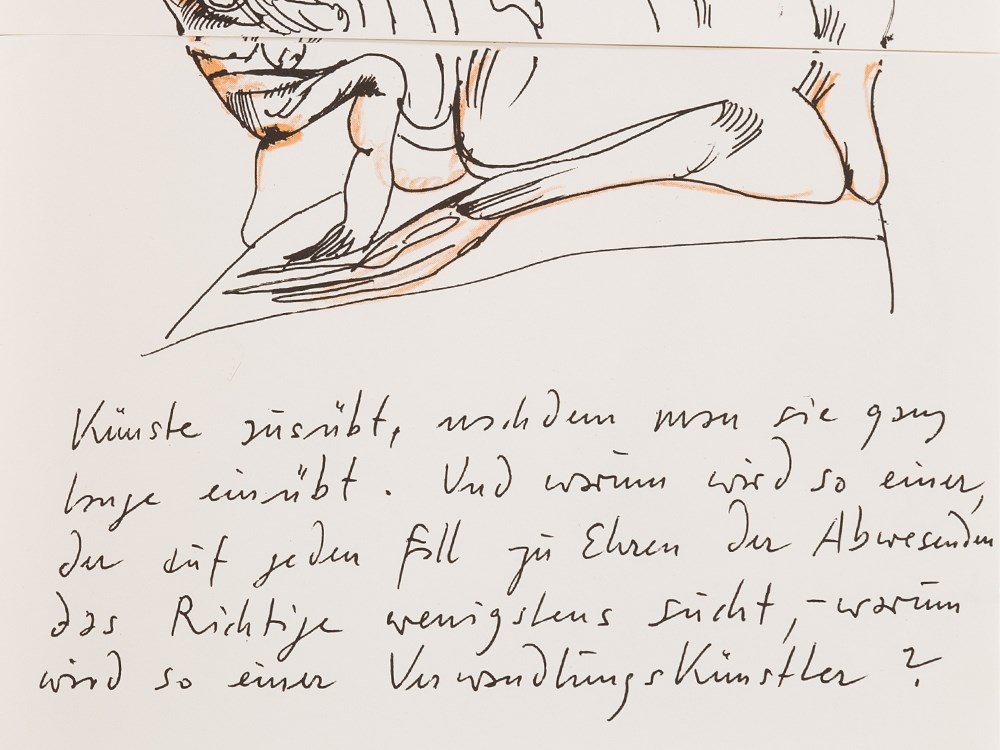 Künste ausübt, nachdem man sie ganz
lange einübt. Und warum wird so einer,
der auf jeden Fall zu Ehren der Abwesenden
das Richtige wenigstens sucht, – warum
wird so einer Verwandlungskünstler?